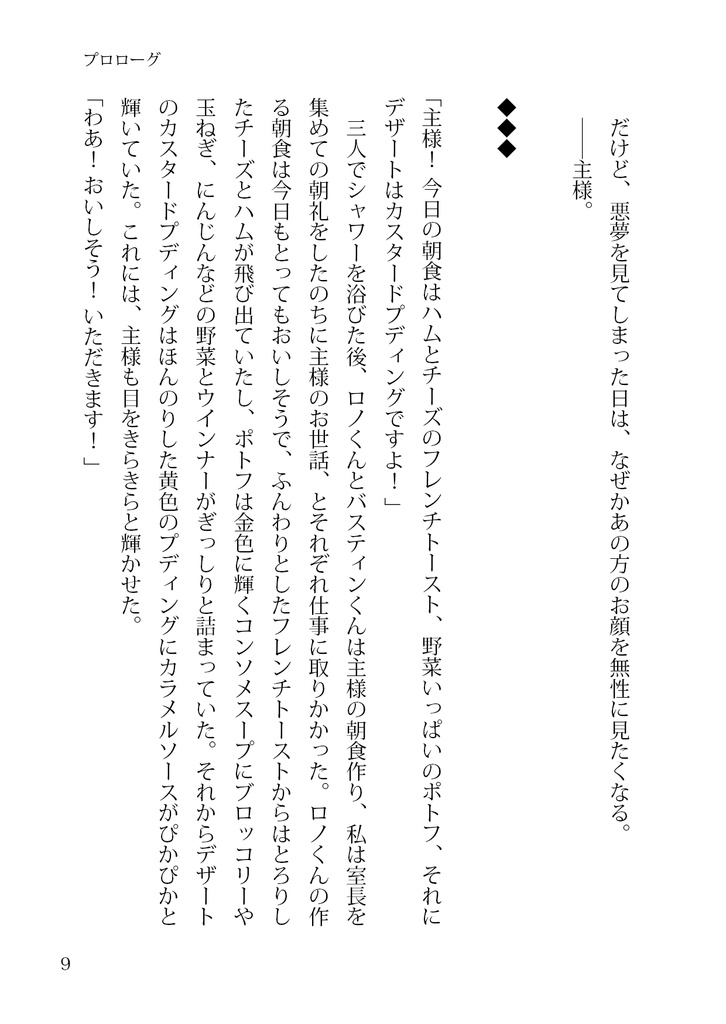 プロローグ
だけど、悪夢を見てしまった日は、なぜかあの方のお顔を無性に見たくなる。
――主様。
◆◆◆
「主様！ 今日の朝食はハムとチーズのフレンチトースト、野菜いっぱいのポトフ、それに
デザートはカスタードプディングですよ！」
三人でシャワーを浴びた後、ロノくんとバスティンくんは主様の朝食作り、私は室長を
集めての朝礼をしたのちに主様のお世話、とそれぞれ仕事に取りかかった。ロノくんの作
る朝食は今日もとってもおいしそうで、ふんわりとしたフレンチトーストからはとろりし
たチーズとハムが飛び出ていたし、ポトフは金色に輝くコンソメスープにブロッコリーや
玉ねぎ、にんじんなどの野菜とウインナーがぎっしりと詰まっていた。それからデザート
のカスタードプディングはほんのりした黄色のプディングにカラメルソースがぴかぴかと
輝いていた。これには、主様も目をきらきらと輝かせた。
「わあ！ おいしそう！ いただきます！」
9